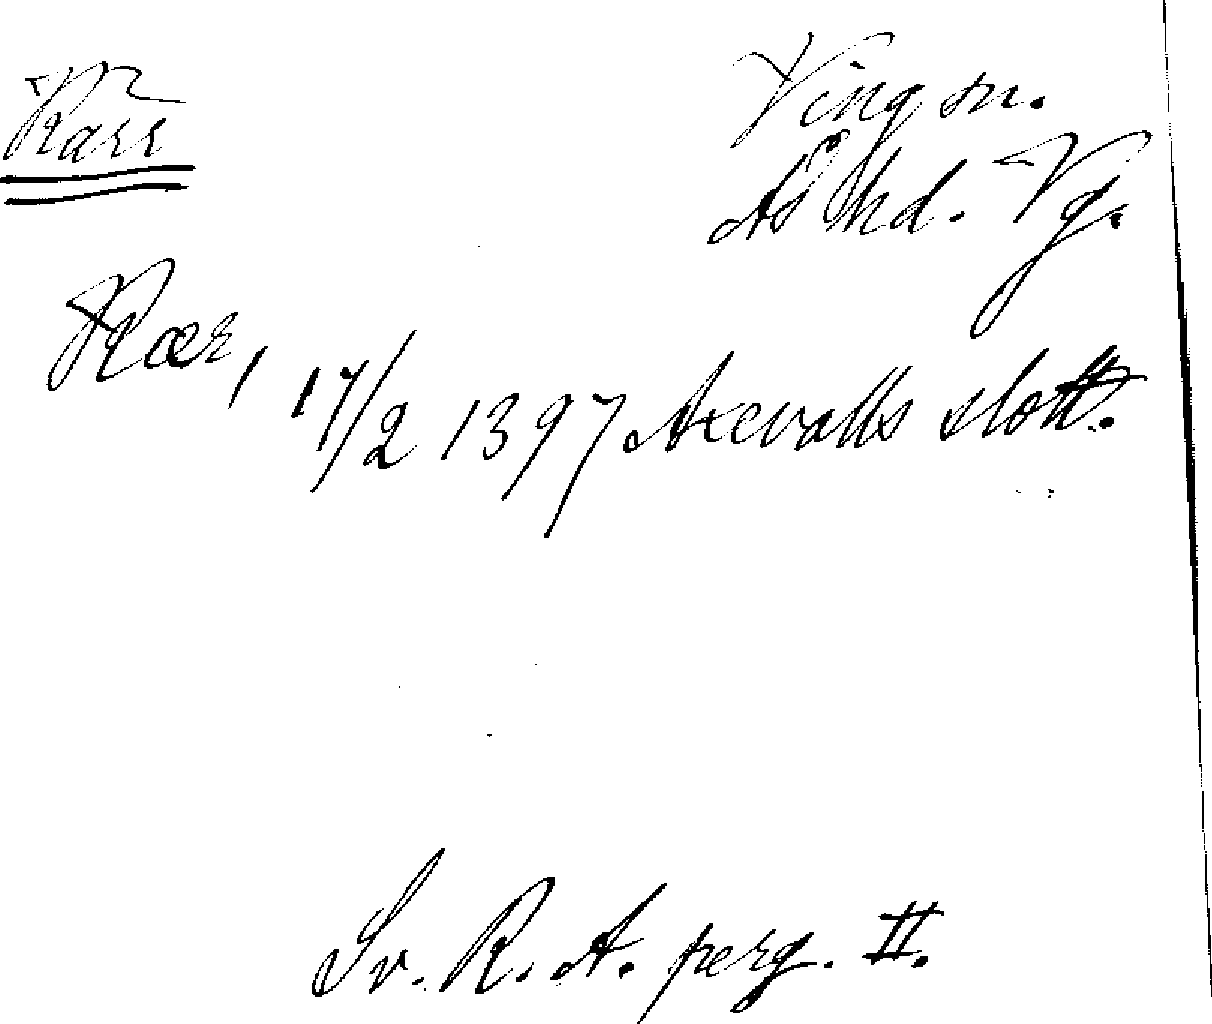 Kärr
Ving sn.
Ås hd. Vg.
Kær, 17/2 1397 Axevalls slott.
Sv. R. A. perg. II.